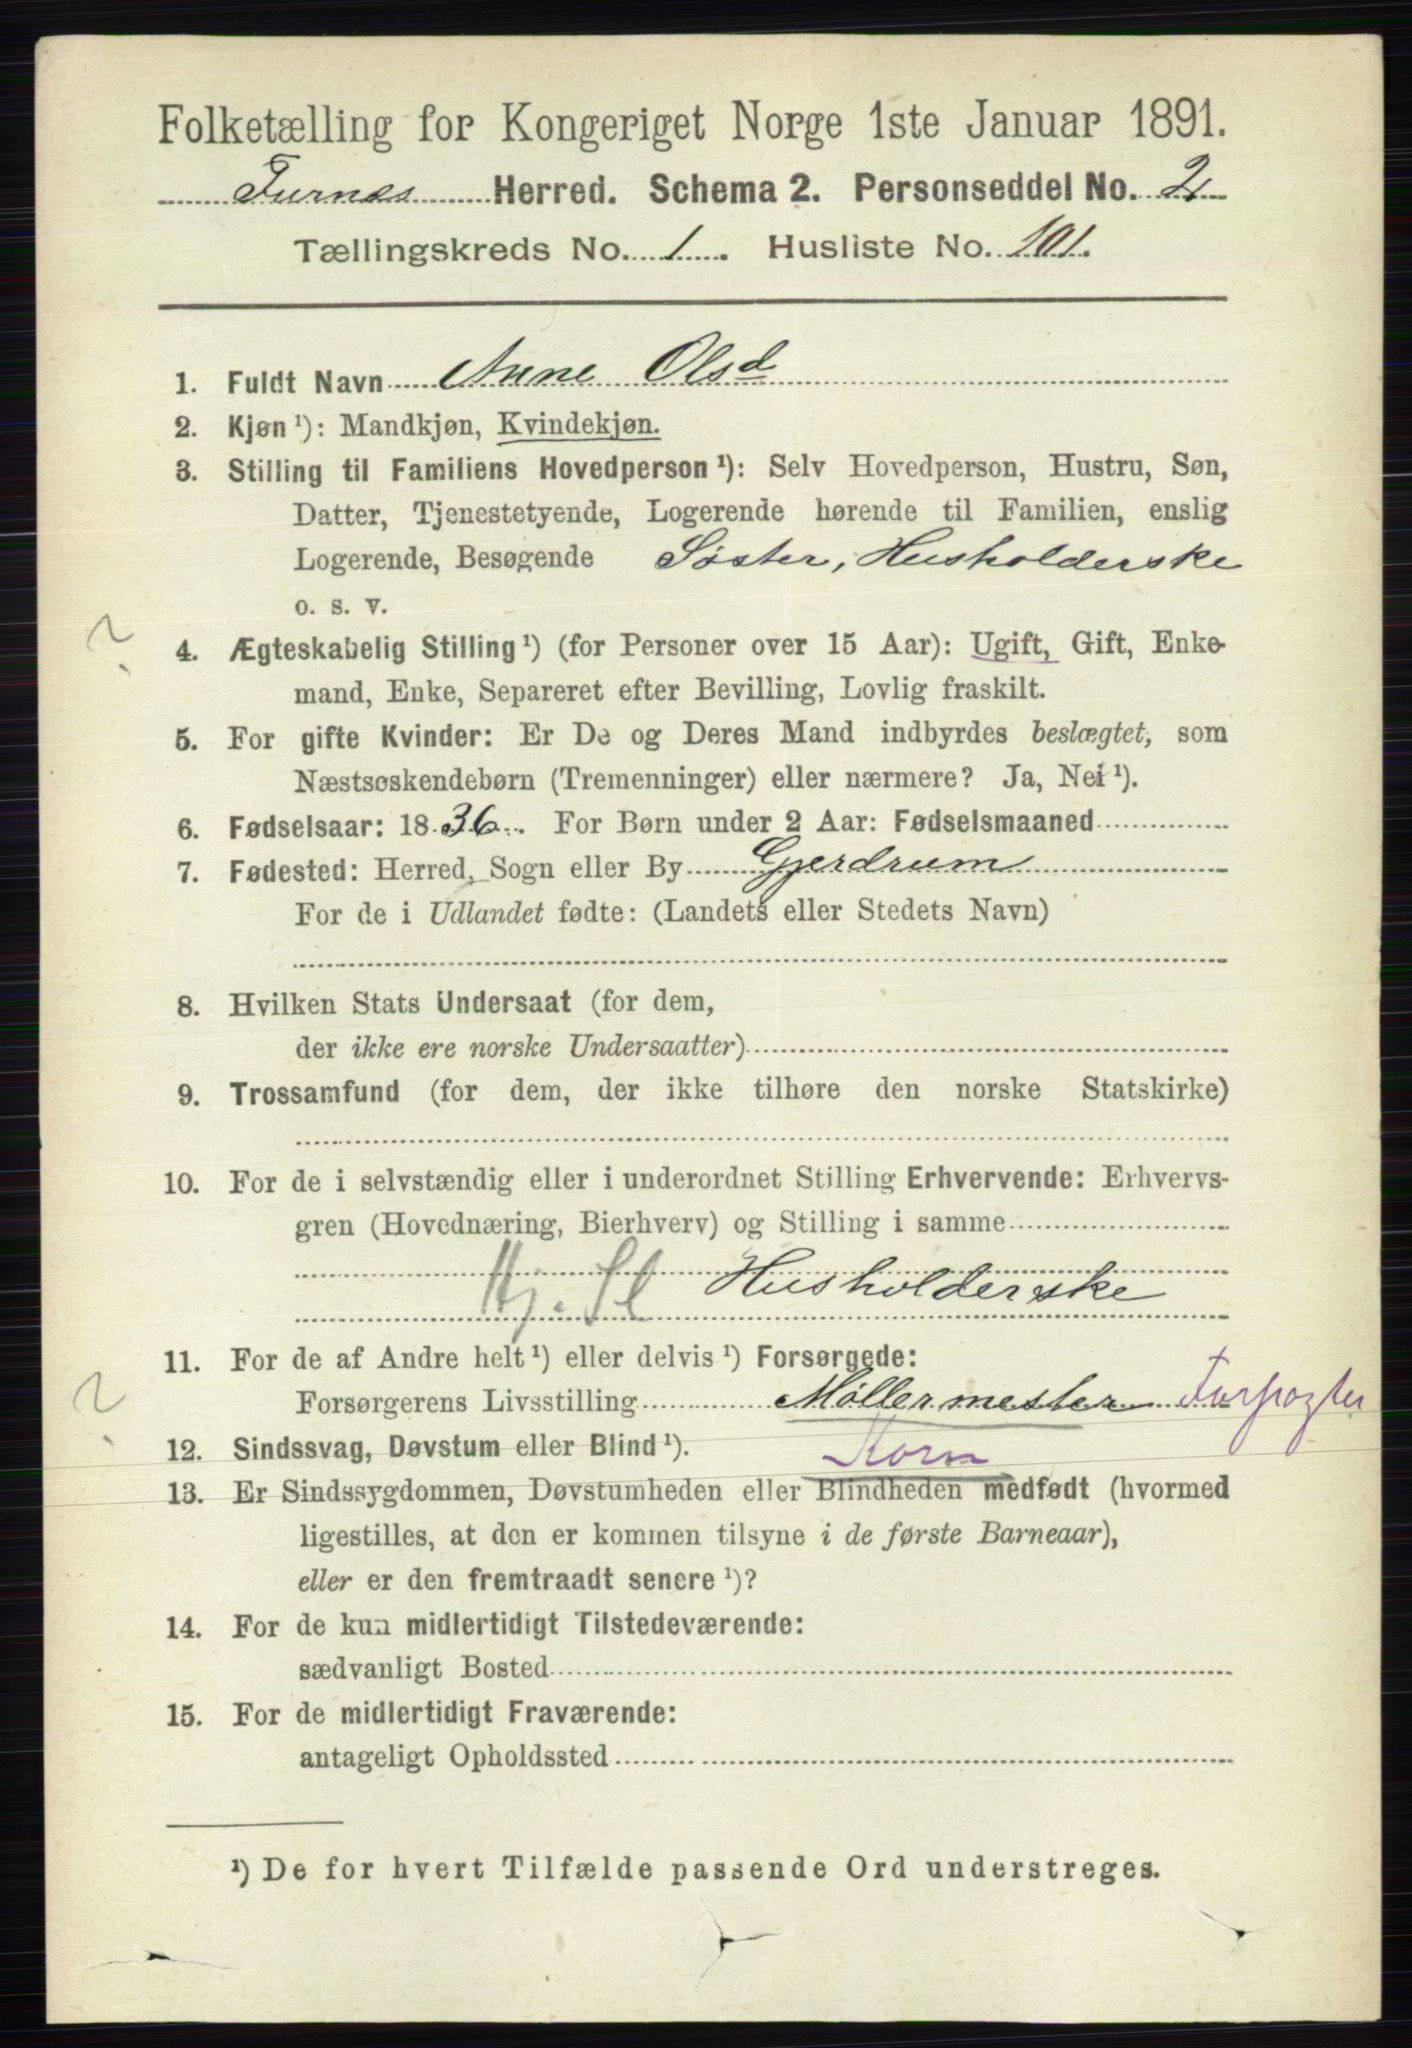 Folketælling for Kongeriget Norge 1ste Januar 1891.
Furnes Herred. Schema 2. Personseddel No. 2
Tællingskreds No. 1. Husliste No. 101.
1. Fuldt Navn Anne Olsd
2. Kjøn ¹): Mandkjøn, Kvindekjøn.
3. Stilling til Familiens Hovedperson ¹): Selv Hovedperson, Hustru, Søn,
Datter, Tjenestetyende, Logerende hørende til Familien, enslig
Logerende, Besøgende Søster, Husholderske
o. s. v.
?
4. Ægteskabelig Stilling ¹) (for Personer over 15 Aar): Ugift, Gift, Enke-
mand, Enke, Separeret efter Bevilling, Lovlig fraskilt.
5. For gifte Kvinder: Er De og Deres Mand indbyrdes beslægtet, som
Næstsøskendebørn (Tremenninger) eller nærmere? Ja, Nei ¹).
6. Fødselsaar: 1836. For Børn under 2 Aar: Fødselsmaaned
7. Fødested: Herred, Sogn eller By Gjerdrum
For de i Udlandet fødte: (Landets eller Stedets Navn)
8. Hvilken Stats Undersaat (for dem,
der ikke ere norske Undersaatter)
9. Trossamfund (for dem, der ikke tilhøre den norske Statskirke)
10. For de i selvstændig eller i underordnet Stilling Erhvervende: Erhvervs-
gren (Hovednæring, Bierhverv) og Stilling i samme
Hj. Sl Husholderske
11. For de af Andre helt ¹) eller delvis ¹) Forsørgede:
?
Forsørgerens Livsstilling Møllermester Forpagter
12. Sindssvag, Døvstum eller Blind ¹). Korn
13. Er Sindssygdommen, Døvstumheden eller Blindheden medfødt (hvormed
ligestilles, at den er kommen tilsyne i de første Barneaar),
eller er den fremtraadt senere ¹)?
14. For de kun midlertidigt Tilstedeværende:
sædvanligt Bosted
15. For de midlertidigt Fraværende:
antageligt Opholdssted
¹) De for hvert Tilfælde passende Ord understreges.